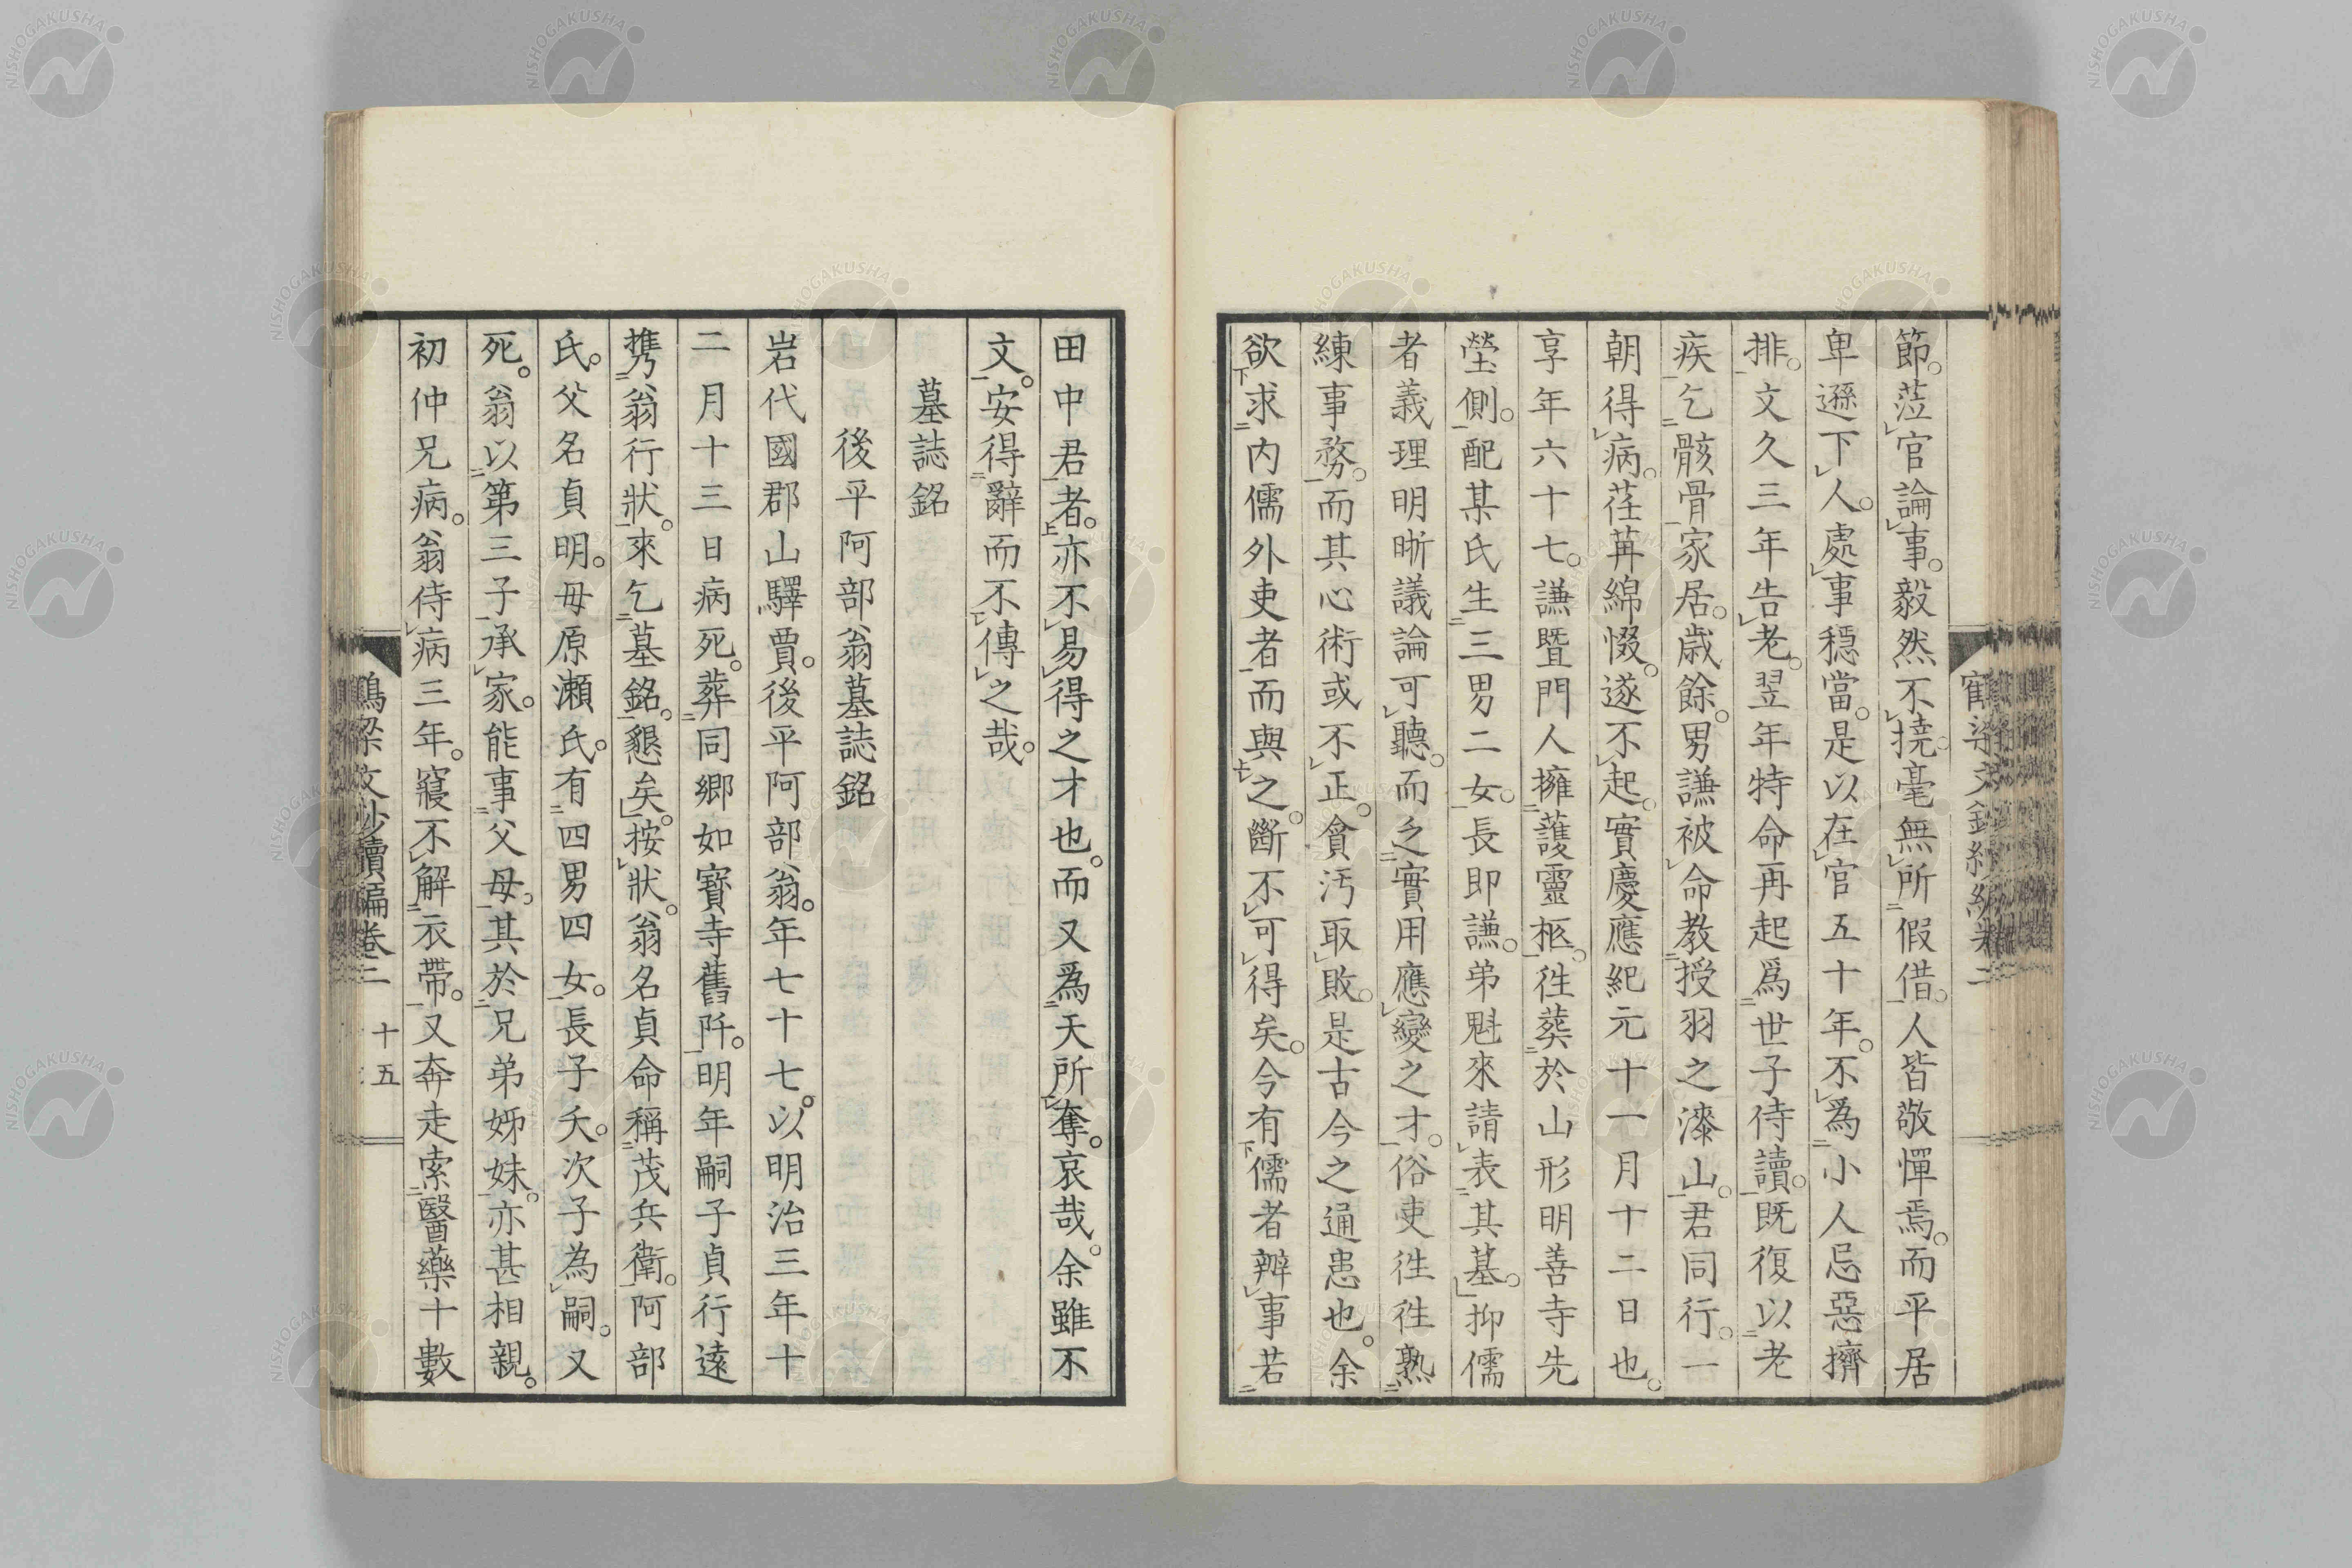 節。莅官論事。毅然不撓。毫無所假借。人皆敬憚焉。而平居
卑遜下人。處事穩當。是以在官五十年。不爲小人忌惡擠
排。文久三年告老。翌年特命再起爲世子侍讀。既復以老
疾乞骸骨家居。歳餘。男謙被命教授羽之漆山。君同行。一
朝得病。荏苒綿惙。遂不起。實慶應紀元十一月十二日也。
享年六十七。謙暨門人擁護靈柩。徃葬於山形明善寺先
塋側。配某氏生三男二女。長即謙。弟魁來請表其墓。抑儒
者義理明晰議論可聽。而乏實用應變之才。俗吏徃徃熟
練事務。而其心術或不正。貪汚取敗。是古今之通患也。余
欲求内儒外吏者而與之。斷不可得矣。今有儒者辨事若
田中君者。亦不易得之才也。而又爲天所奪。哀哉。余雖不
文。安得辭而不傳之哉。
墓誌銘
後平阿部翁墓誌銘
岩代國郡山驛賈。後平阿部翁。年七十七。以明治三年十
二月十三日病死。葬同郷如寶寺舊阡。明年嗣子貞行遠
携翁行狀。來乞墓銘。懇矣。按狀。翁名貞命稱茂兵衛。阿部
氏。父名貞明。母原瀬氏。有四男四女。長子夭。次子為嗣。又
死。翁以第三子承家。能事父母。其於兄弟姊妹。亦甚相親。
初仲兄病。翁侍病三年。寢不解衣帶。又奔走索醫藥十數
鶴梁文鈔續編卷二
十五